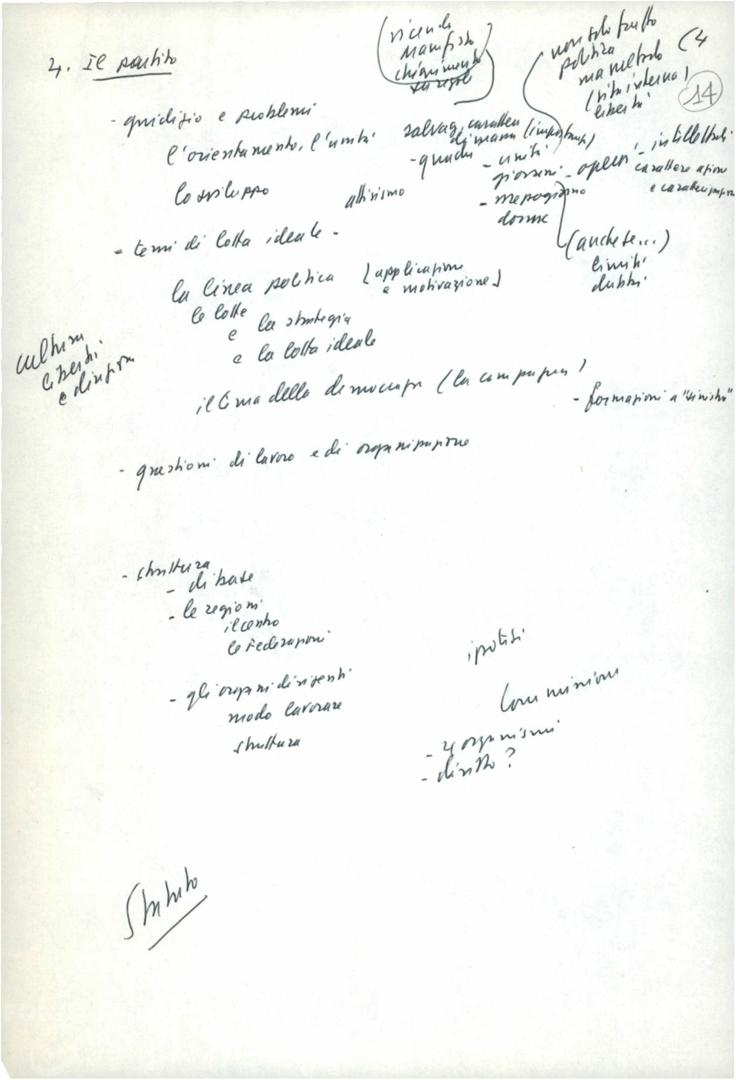 4. Il partito
(vicenda
Manifesto
chiarimento
su regole
non solo frutto
politica
ma metodo
(vita interna)
libertà
(4
14
- giudizio e problemi
l'orientamento, l'unità
lo sviluppo
attivismo
salvag. carattere
di massa (importanza)
- quadri
- uniti
giovani - operai
- mezzogiorno
donne
- intellettuali
carattere
e
(anche se...)
limiti
dubbi
- temi di lotta ideale -
la linea politica (applicazione
e motivazione)
le lotte
e la strategia
e la lotta ideale
cultura
libertà
e
il tema della democrazia (la campagna)
- formazioni a "sinistra"
- questioni di lavoro e di organizzazione
- struttura
- di base
- le regioni
il centro
le Federazioni
- gli organi dirigenti
modo lavorare
struttura
ipotesi
Commissioni
- 4 organismi
- diritto?
Statuto